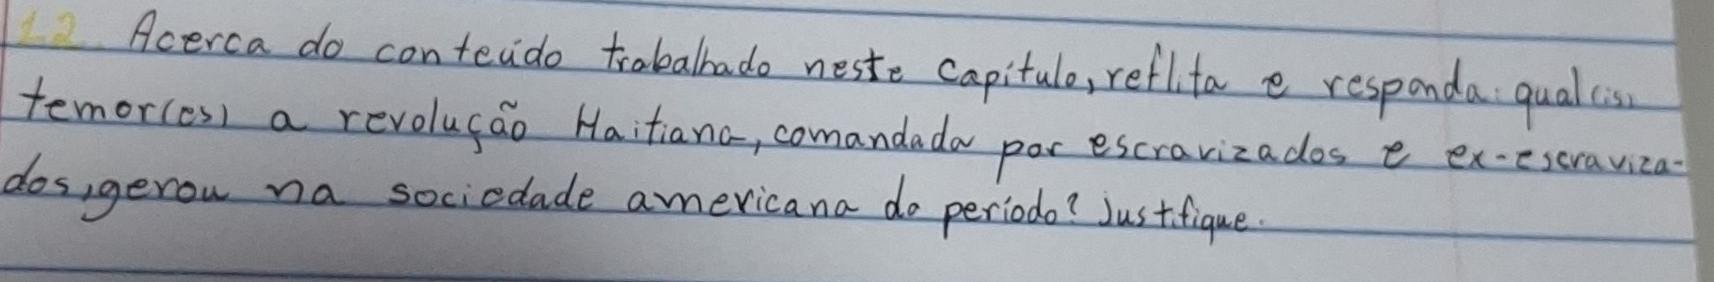 12. Acerca do conteúdo trabalhado neste capítulo, reflita e responda: qual(is)
temor(es) a revolução Haitiana, comandada por escravizados e ex-escraviza-
dos, gerou na sociedade americana do período? Justifique.